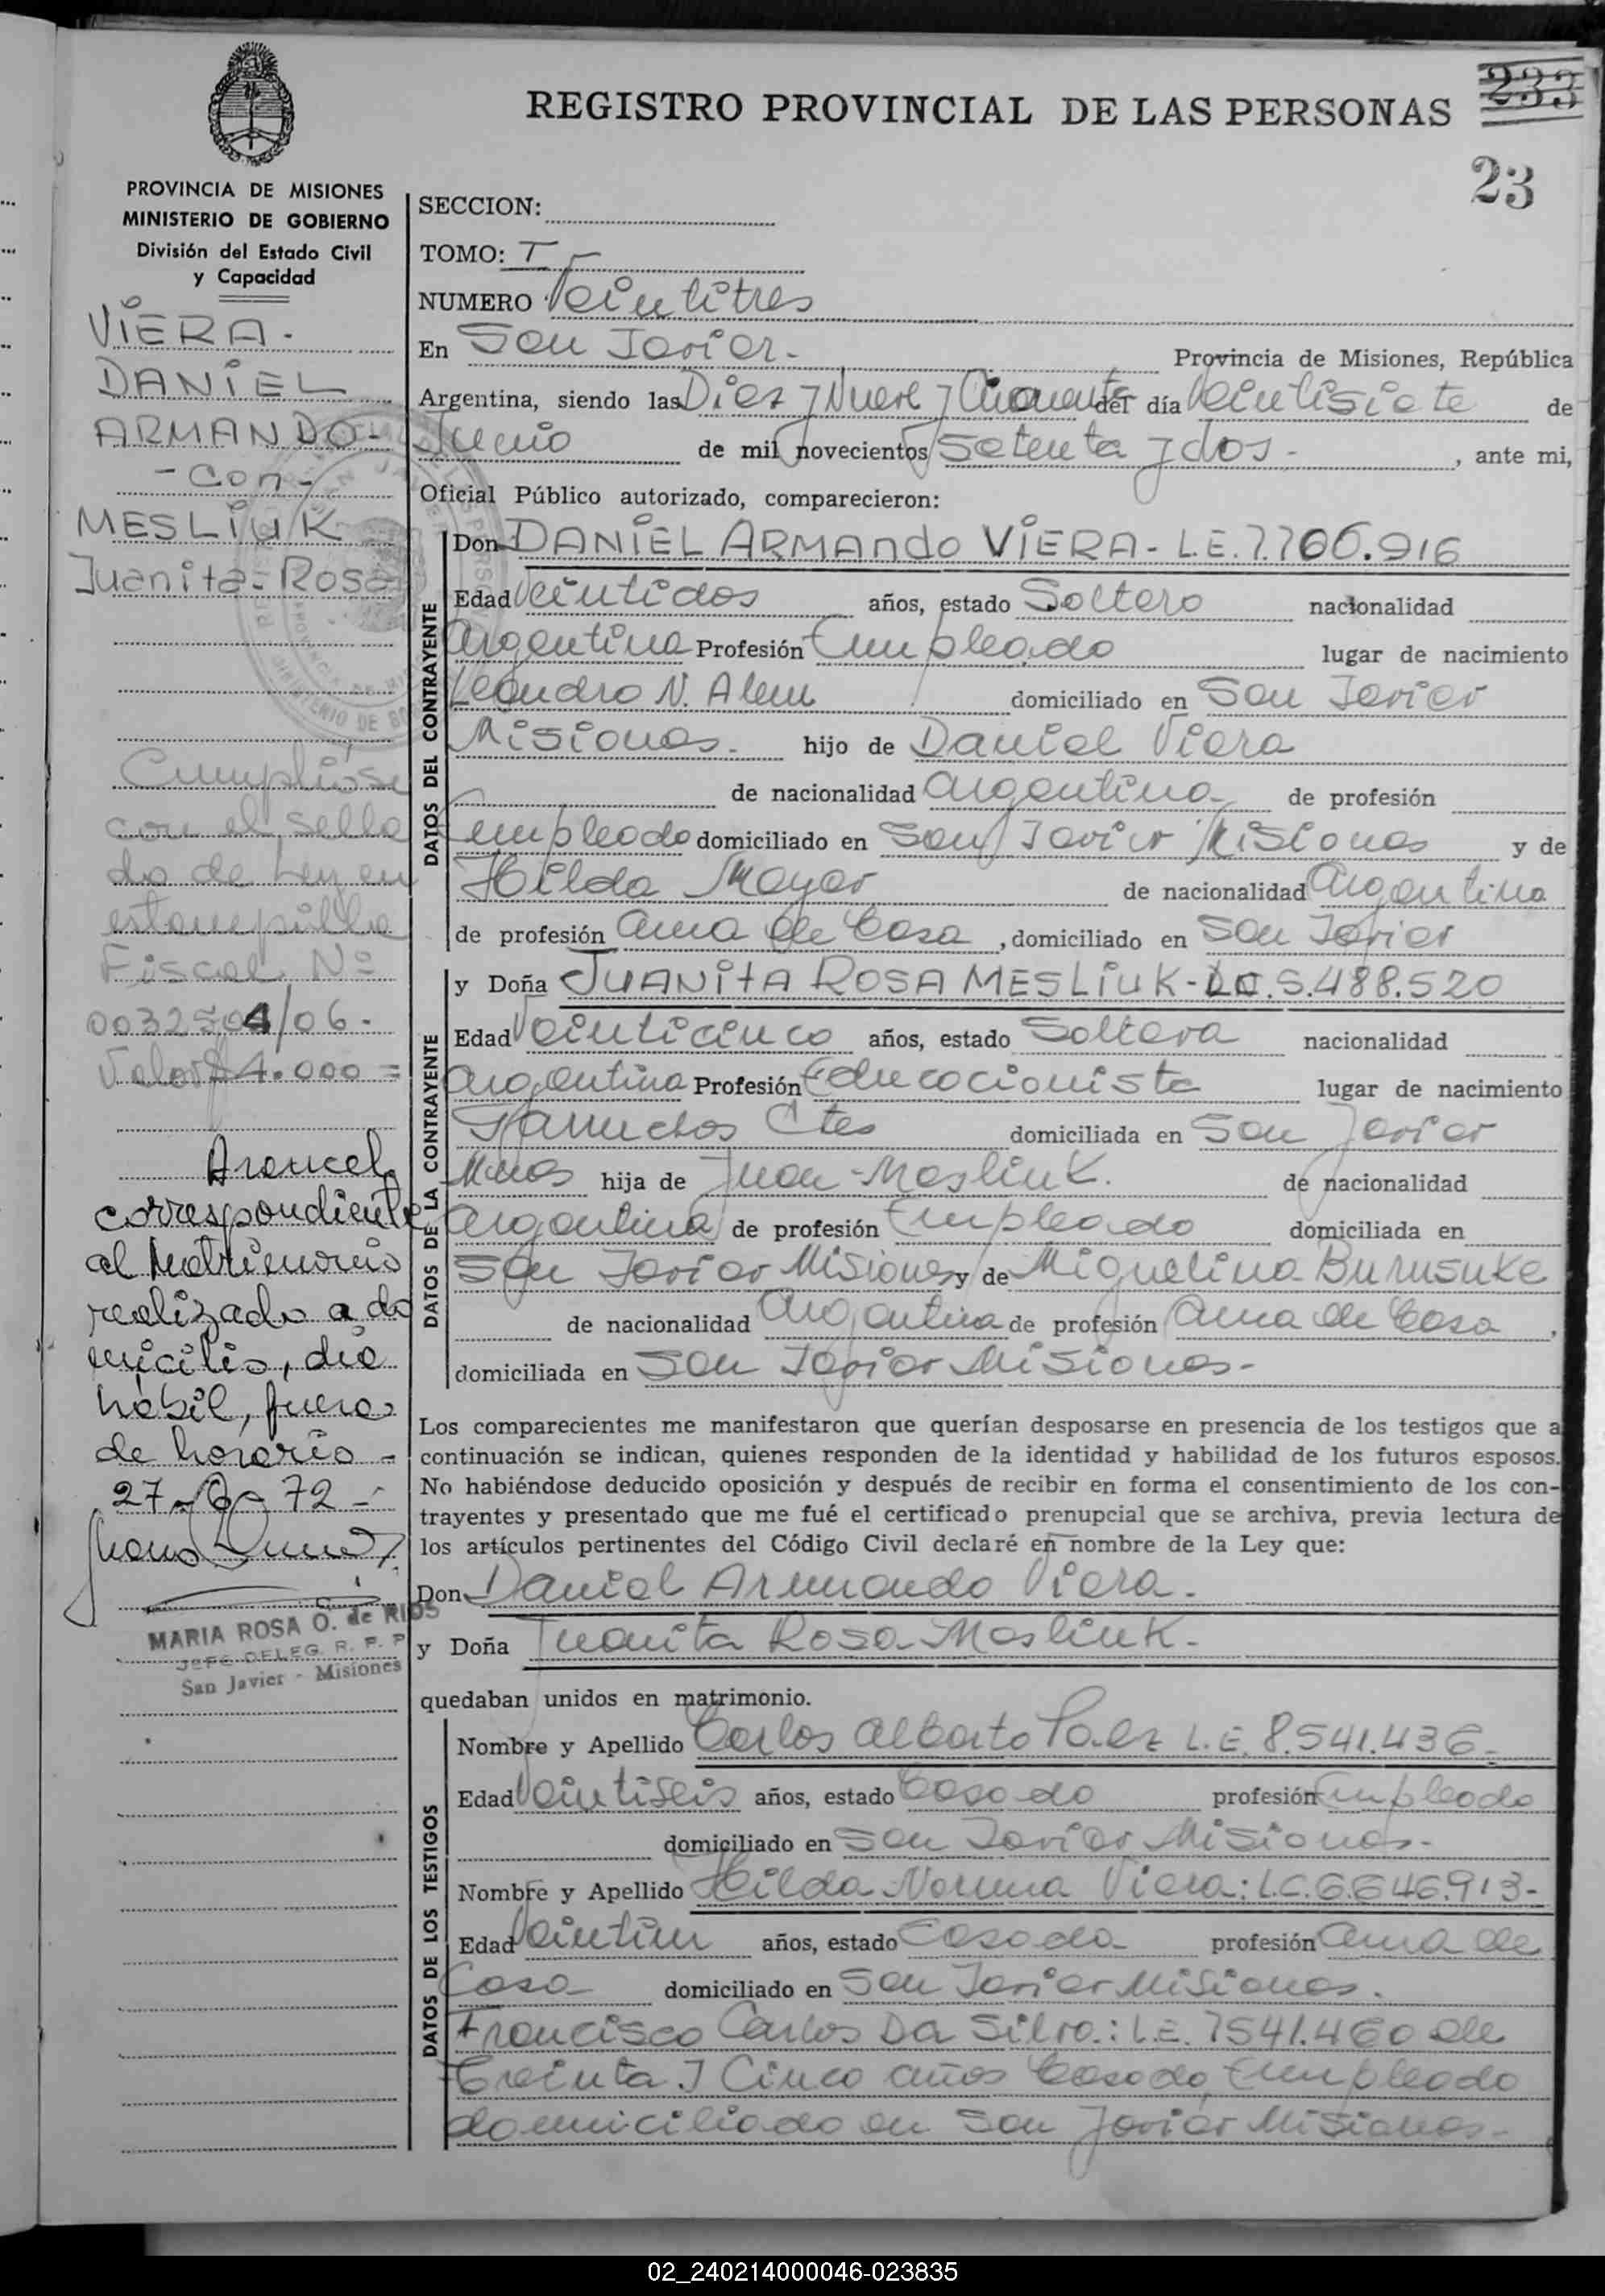 REGISTRO PROVINCIAL DE LAS PERSONAS
233
23
PROVINCIA DE MISIONES
MINISTERIO DE GOBIERNO
División del Estado Civil
y Capacidad
VIERA.
DANIEL
ARMANDO-
- con -
MESLIUK
Juanita-Rosa
Cumplióse
con el sella
do de Ley en
estampilla
Fiscal Nº
0032504/06.
Valor $4.000=
Arancel
correspondiente
al Matrimonio
realizado a do
micilio, día
hábil, fuera
de horario -
27-6-72-
MARIA ROSA O. de RIOS
JEFE DELEG. R. P. P
San Javier - Misiones
SECCION:
TOMO: I
NUMERO Veintitres
En San Javier.- Provincia de Misiones, República
Argentina, siendo las Diez y Nueve y Cincuenta del día Veintisiete de
Junio de mil novecientos Setenta y dos.- , ante mi,
Oficial Público autorizado, comparecieron:
DATOS DEL CONTRAYENTE
Don DANIEL ARMANDO VIERA- L.E. 7.706.916
Edad Veintidos años, estado Soltero nacionalidad
Argentina Profesión Empleado lugar de nacimiento
Leandro N. Alem domiciliado en San Javier
Misiones.- hijo de Daniel Viera
de nacionalidad Argentina- de profesión
Empleado domiciliado en San Javier Misiones y de
Hilda Mayer de nacionalidad Argentina
de profesión Ama de Casa , domiciliado en San Javier
DATOS DE LA CONTRAYENTE
y Doña JUANITA ROSA MESLIUK- L.C. 5.488.520
Edad Veinticinco años, estado Soltera nacionalidad
Argentina Profesión Educacionista lugar de nacimiento
Garruchos Ctes domiciliada en San Javier
Mnes hija de Juan Mesliuk. de nacionalidad
Argentina de profesión Empleado domiciliada en
San Javier Misiones y de Miguelina Burusuke
de nacionalidad Argentina de profesión Ama de Casa ,
domiciliada en San Javier Misiones-
Los comparecientes me manifestaron que querían desposarse en presencia de los testigos que a
continuación se indican, quienes responden de la identidad y habilidad de los futuros esposos.
No habiéndose deducido oposición y después de recibir en forma el consentimiento de los con-
trayentes y presentado que me fué el certificado prenupcial que se archiva, previa lectura de
los artículos pertinentes del Código Civil declaré en nombre de la Ley que:
Don Daniel Armando Viera.
y Doña Juanita Rosa Mesliuk.
quedaban unidos en matrimonio.
DATOS DE LOS TESTIGOS
Nombre y Apellido Carlos Alberto Paez L.E. 8.541.436-
Edad Veintiseis años, estado Casado profesión Empleado
domiciliado en San Javier Misiones.-
Nombre y Apellido Hilda Norma Viera: L.C. 6.646.913-
Edad Veintiun años, estado Casada profesión Ama de
Casa domiciliado en San Javier Misiones.
Francisco Carlos Da Silva.: L.E. 7541.460 de
treinta y Cinco años Casado, Empleado
domiciliado en San Javier Misiones-
02_240214000046-023835